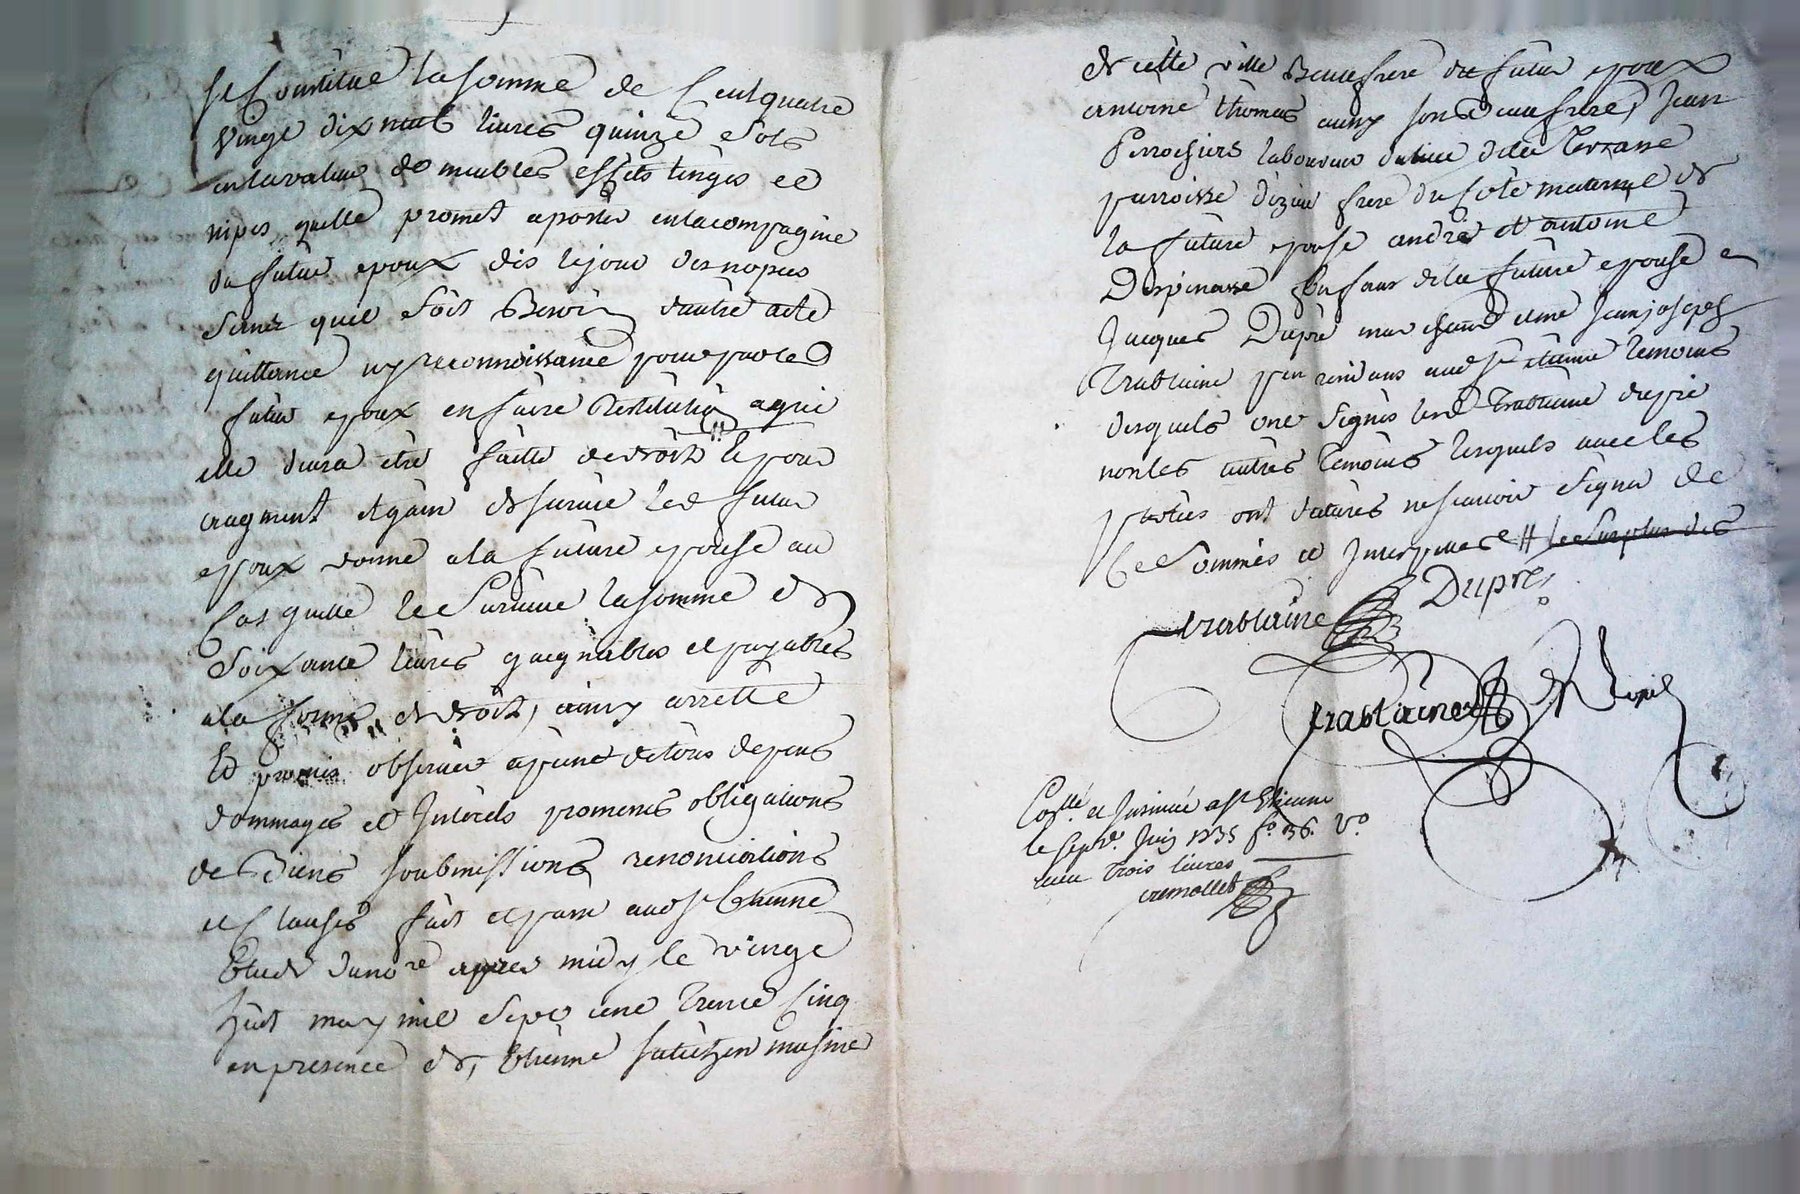 se Constitue la somme de Cent quatre
vingt dix neuf livres quinze sols
en la valeur de meubles effets linges et
nipes quelle promet aporter en la compagnie
du futur epoux dis le jour des nopces
sans quil soit Besoin dautre acte
quittance ny reconnoissance pour par led
futur epoux en faire Restitution a qui
elle devra etre faitte de droit # et pour
augment et gain de survie led futur
epoux donne a la future epouse au
Cas quelle le Survive la somme de
Soixante livres gaignables et payables
a la forme de droit, ainsy arretté
Et promis observer a peine de tous depens
dommages et Interets promenes obligations
de Biens soubmissions renonciations
et Clauses fait et passé aud St Etienne
Etude dud no.re apres midy le vingt
huit may mil Sept cent trente Cinq
en presence de, Etienne
de cette ville Beaufrere du futur epoux
antoine thomas aussy son Beaufrere, Jean
laboureur du lieu de la Terrasse
parroisse dizieu frere du Coté maternel de
la future epouse andré et antoine
Despinasse de la future epouse et
Jacques Dupré marchand et me Jean joseph
Trablaine pr resident aud St etienne temoins
desquels ont signés led Trablaine dupré
non les autres temoins lesquels avec les
parties ont declarés ne scavoir signer de
Ce Sommés et Interpellés # le Surplus des
trablaine Dupré
trablaine
Co.llé et Insinué a St Etienne
le sept.e Juin 1735 f.o 36. V.o
receu trois livres
cremollet